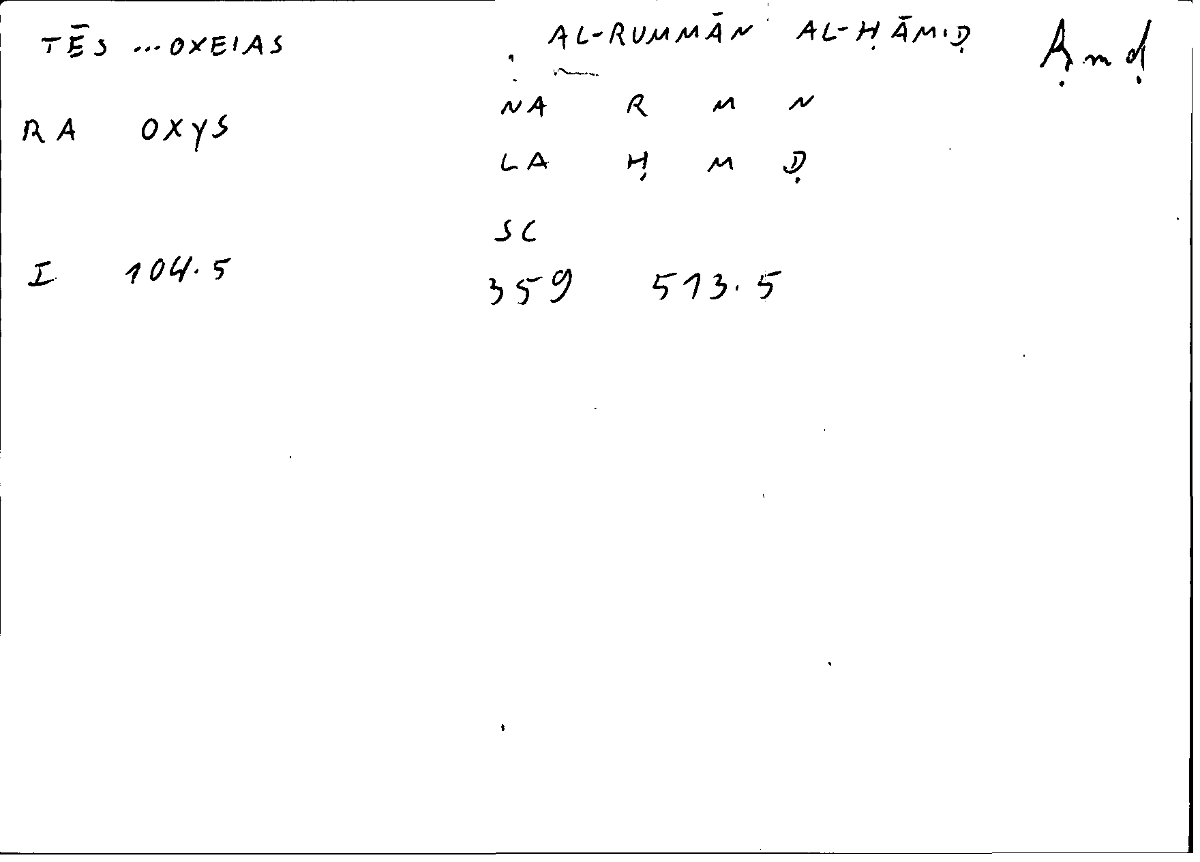 TĒS ...OXEIAS AL-RUMMĀN AL-ḤĀMIḌ Ḥmḍ
NA R M N
RA OXYS
LA Ḥ M Ḍ
SC
I 104.5 359 513.5